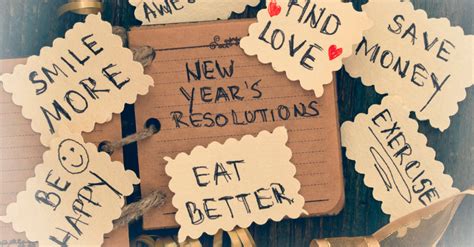 FIND
LOVE
SAVE
MONEY
SMILE
MORE
NEW
YEAR'S
RESOLUTIONS
EXERCISE
BE
HAPPY
EAT
BETTER